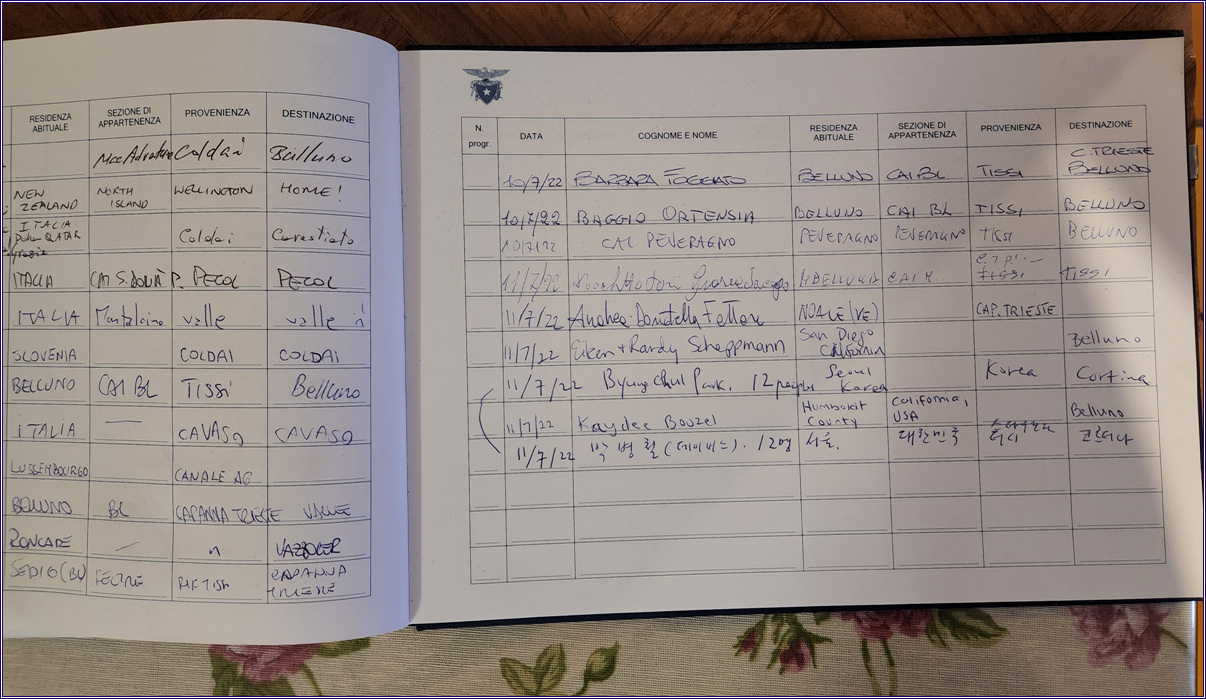 RESIDENZA ABITUALE SEZIONE DI APPARTENENZA PROVENIENZA DESTINAZIONE
Coldai Belluno
NEW ZEALAND NORTH ISLAND WELLINGTON HOME!
ITALIA QATAR Coldai Carestiato
ITALIA CAI S. DONÀ P. PECOL PECOL
ITALIA valle valle
SLOVENIA COLDAI COLDAI
BELLUNO CAI BL TISSI Belluno
ITALIA — CAVASO CAVASO
LUSSEMBOURGO CANALE AG
BELLUNO BL CAPANNA TRIESTE VALLE
FELTRE CAPANNA TRIESTE
N. progr. DATA COGNOME E NOME RESIDENZA ABITUALE SEZIONE DI APPARTENENZA PROVENIENZA DESTINAZIONE
10/7/22 BARBARA BELLUNO CAI BL TISSI C. TRIESTE BELLUNO
10/7/22 BAGGIO ORTENSIA BELLUNO CAI BL TISSI BELLUNO
10/7/22 CAI PEVERAGNO PEVERAGNO PEVERAGNO TISSI BELLUNO
11/7/22 TISSI TISSI
11/7/22 Andrea Donatella NOALE (VE) CAP. TRIESTE
11/7/22 Eiken + Randy Scheppmann San Diego California Belluno
11/7/22 Byung chul Park. 12 peoples Seoul Korea Korea Cortina
11/7/22 Kaydee Boozel Humboldt County California, USA Belluno
11/7/22 박 병 철 (데이비드). 12명 서울. 대한민국 티시 코르티나